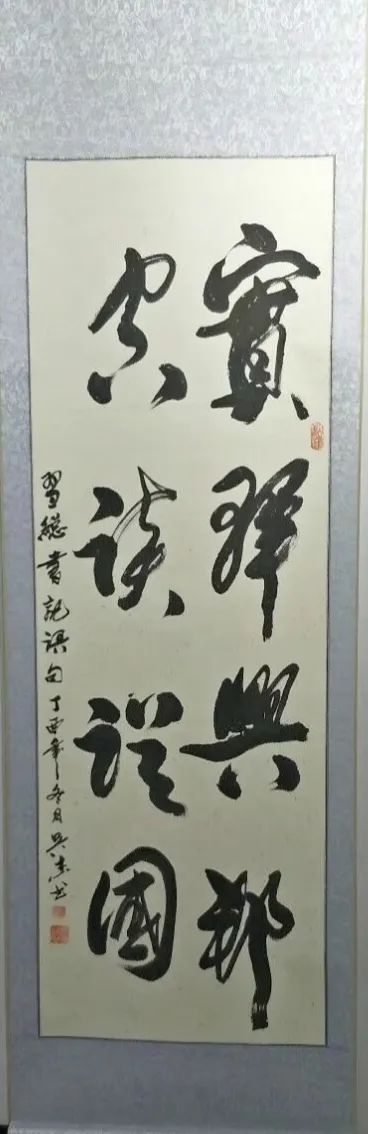 實幹興邦
空談誤國
習總書記語句丁酉年冬月吳书